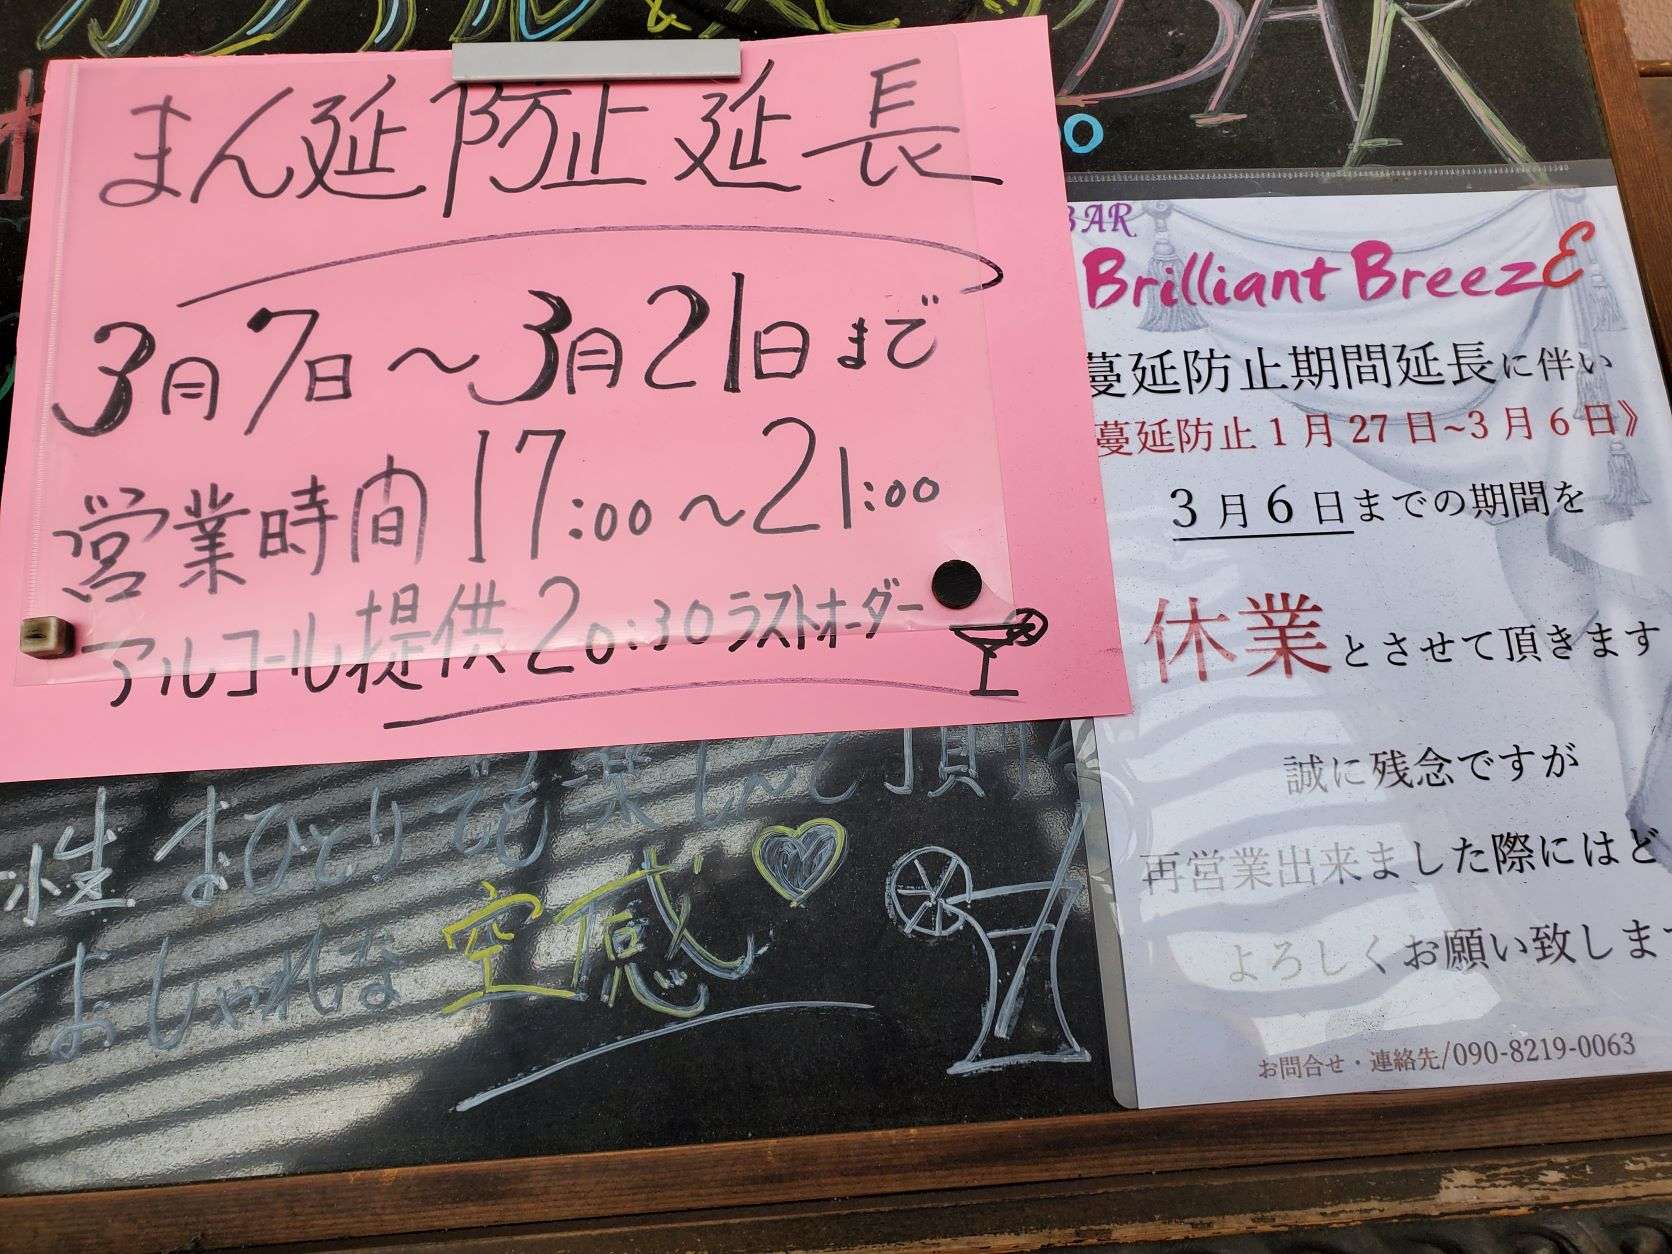 BAR
まん延防止延長
3月7日～3月21日まで
営業時間 17:00～21:00
アルコール提供 20:30 ラストオーダー
BAR
Brilliant BreezE
蔓延防止期間延長に伴い
蔓延防止1月27日~3月6日》
3月6日までの期間を
休業とさせて頂きます
誠に残念ですが
再営業出来ました際にはど
よろしくお願い致しま
お問合せ・連絡先/090-8219-0063
性 おひとりでも楽しんで頂
おしゃれな 空感